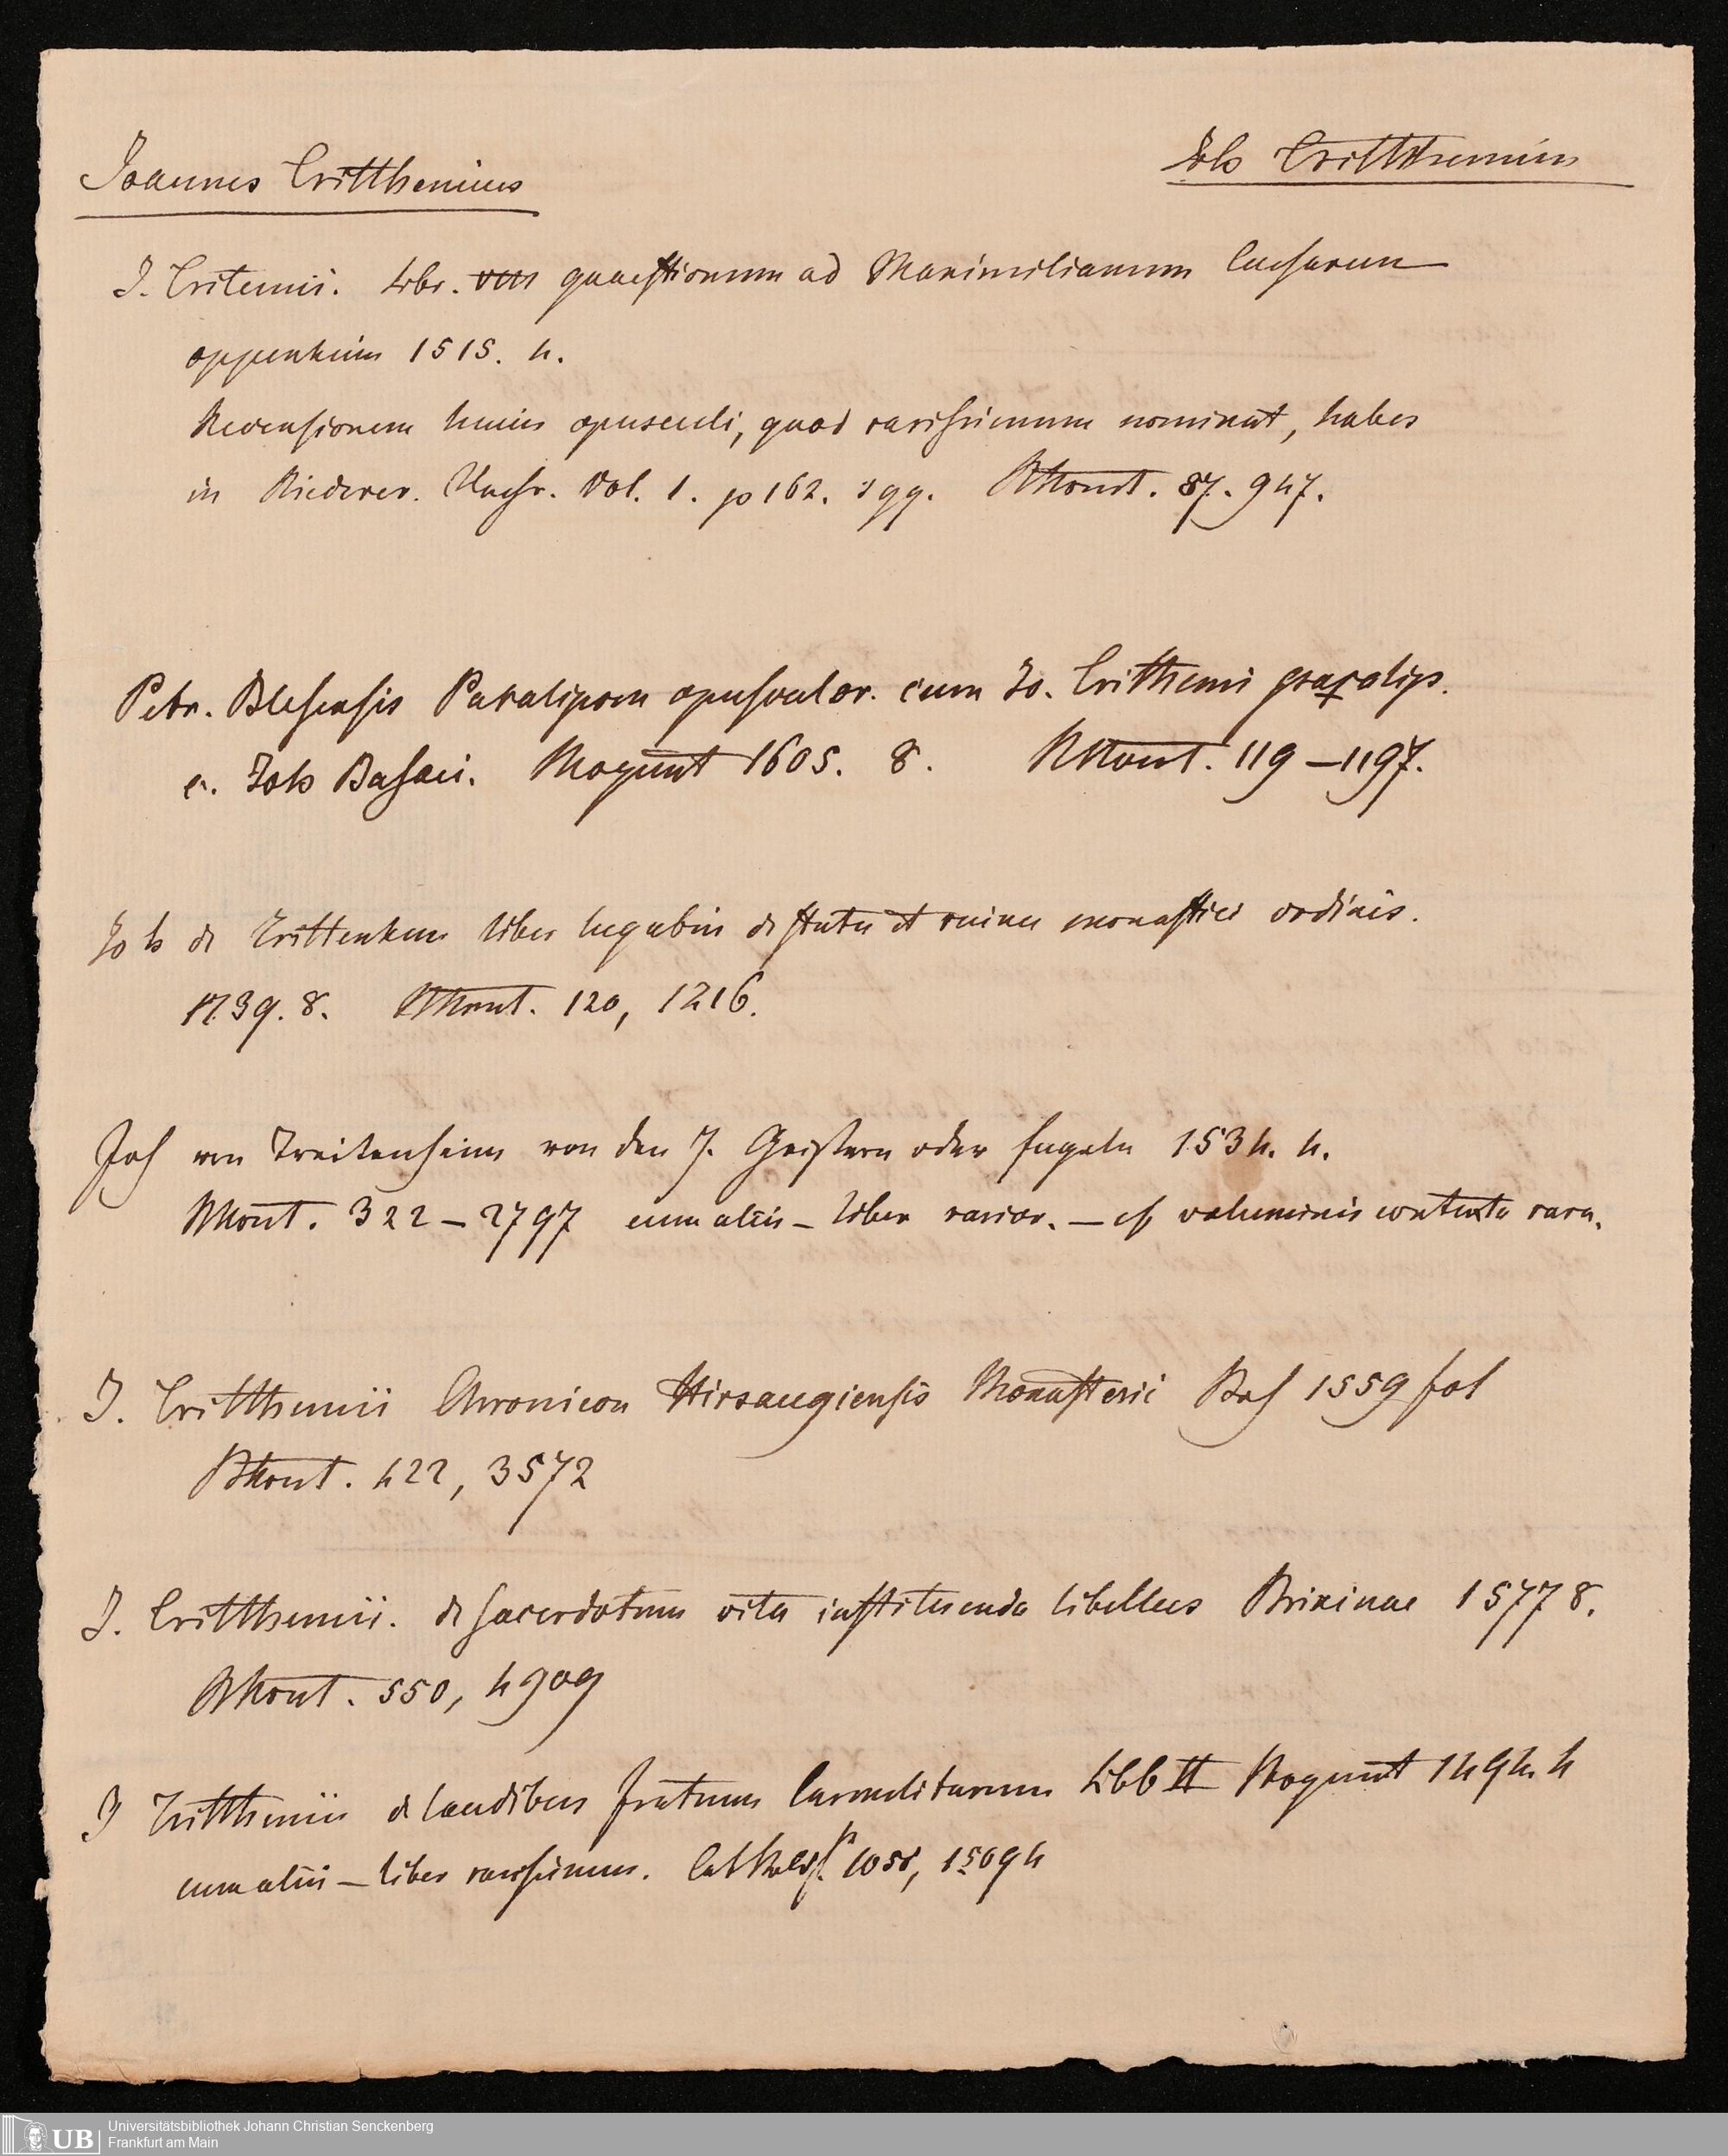 Joannes Tritthemius
Joh Tritthemius
J. Tritemii. Libr. VIII quaestionum ad Maximilianum Caesarem
oppenheim 1515. 4.
Recensionem huius opusculi, quod rarissimum nominat, habes
in Riederer. Nachr. Vol. 1. p 162. sqq. BMont. 87. 947.
Petr. Blesensis Paralipom opusculor. cum Jo. Tritthemii paralip.
e. Joh Busaei. Mogunt 1605. 8. BMont. 119 – 1197.
Joh de Trittenhem liber lugubris de statu et ruina monastici ordinis.
1739. 8. BMont. 120, 1216.
Joh von Treitenheim von den 7. Geistern oder Engeln 1534. 4.
BMont. 322 – 2797 cum aliis – liber rarior. – est voluminis contenta rara.
J. Tritthemii Chronicon Hirsaugiensis Monasterii Bas 1559 fol
BMont. 422, 3572
J. Tritthemii. de sacerdotum vita instituenda libellus Brixinae 1577 8.
BMont. 550, 4909
J Tritthemii de laudibus fratrum Carmelitarum Libb II Mogunt 1494 4
cum aliis – liber rarissimus. Cat 1509 4
Universitätsbibliothek Johann Christian Senckenberg
Frankfurt am Main
UB